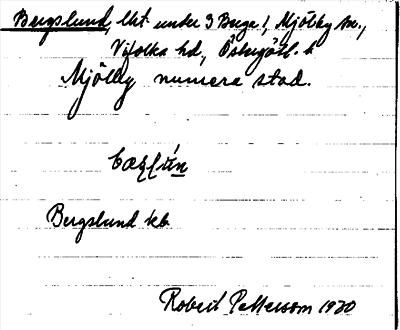 Bergslund, lht under 3 Berge 1, Mjölby sn.,
Vifolka hd, Östergötl. l.
Mjölby numera stad.
Bergslund kb
Robert Pettersson 1930